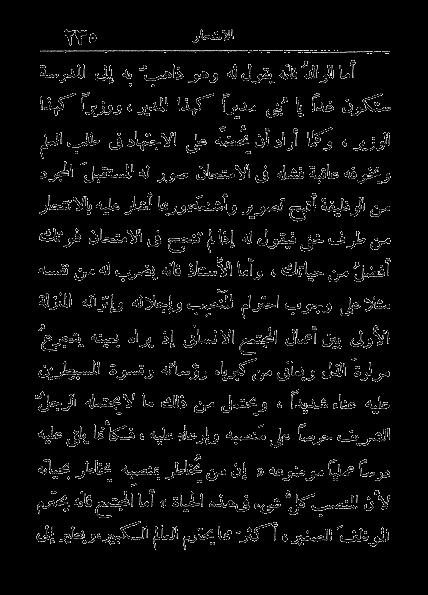 الانتحار ٢٢٥
أما الوالد فانه يقول له وهو ذاهب به إلى المدرسة
ستكون غداً يا بني مديراً كهذا المدير ، ووزيراً كهذا
الوزير ، وكلما أراد أن يحثه على الاجتهاد في طلب العلم
ويخوفه عاقبة فشله في الامتحان صور له المستقبل المجرد
من الوظيفة أقبح تصوير وأشنعه وربما أشار عليه بالانتحار
من طرف خفي فيقول له إذا لم تنجح في الامتحان فموتك
أفضل من حياتك ، وأما الأستاذ فانه يضرب له من نفسه
مثلا على وجوب احترام المنصب وإجلاله وإنزاله المنزلة
الأولى بين أعمال المجتمع الانساني إذ يراه بعينه يتجرع
مرارة الذل ويعاني من كبرياء رؤسائه وقسوة المسيطرين
عليه عناء شديداً ، ويحتمل من ذلك ما لا يحتمله الرجل
الشريف حرصاً على منصبه وإرعاء عليه ، فكأنما يلقي عليه
درساً عملياً موضوعه « إن من يخاطر بمنصبه يخاطر بحياته
لأن المنصب كل شيء في هذه الحياة » أما المجتمع فانه يحترم
الموظف الصغير ، أكثر مما يحترم العالم الكبير ، ويعلي إلى